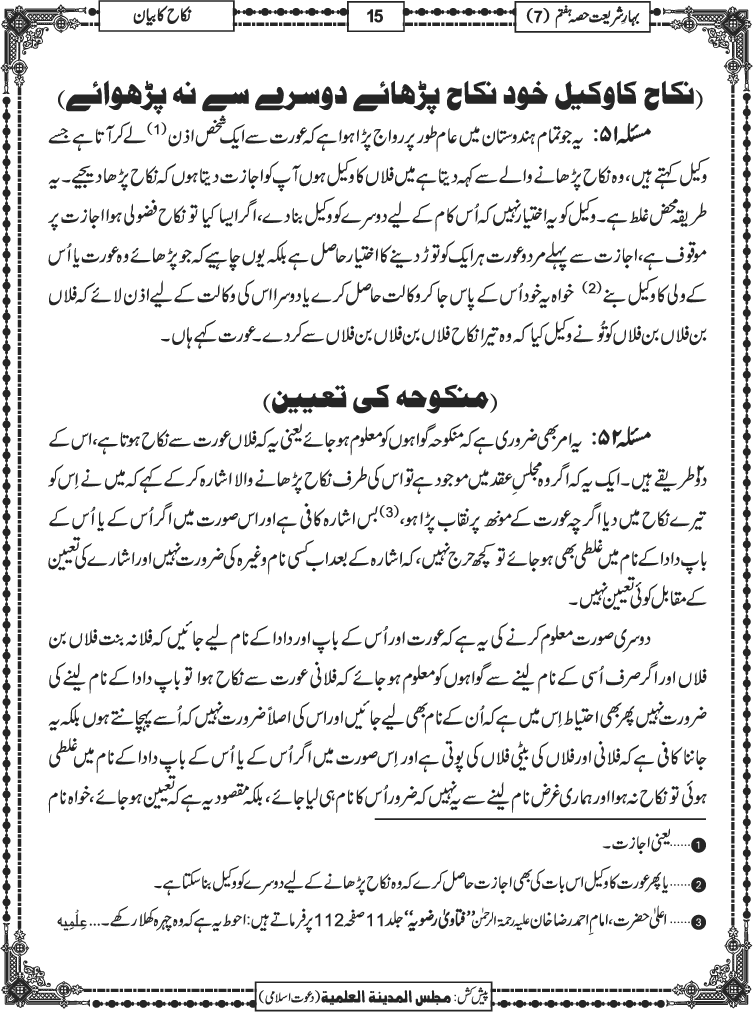 بہارِ شریعت حصہ ہفتم (7)
15
نکاح کا بیان
(نکاح کا وکیل خود نکاح پڑھائے دوسرے سے نہ پڑھوائے)
مسئلہ ۵۱: یہ جو تمام ہندوستان میں عام طور پر رواج پڑا ہوا ہے کہ عورت سے ایک شخص اذن (1) لے کر آتا ہے جسے
وکیل کہتے ہیں، وہ نکاح پڑھانے والے سے کہہ دیتا ہے میں فلاں کا وکیل ہوں آپ کو اجازت دیتا ہوں کہ نکاح پڑھا دیجیے۔ یہ
طریقہ محض غلط ہے۔ وکیل کو یہ اختیار نہیں کہ اُس کام کے لیے دوسرے کو وکیل بنا دے، اگر ایسا کیا تو نکاح فضولی ہوا اجازت پر
موقوف ہے، اجازت سے پہلے مرد و عورت ہر ایک کو توڑ دینے کا اختیار حاصل ہے بلکہ یوں چاہیے کہ جو پڑھائے وہ عورت یا اُس
کے ولی کا وکیل بنے (2) خواہ یہ خود اُس کے پاس جا کر وکالت حاصل کرے یا دوسرا اس کی وکالت کے لیے اذن لائے کہ فلاں
بن فلاں بن فلاں کو تُو نے وکیل کیا کہ وہ تیرا نکاح فلاں بن فلاں بن فلاں سے کر دے۔ عورت کہے ہاں۔
(منکوحہ کی تعیین)
مسئلہ ۵۲: یہ امر بھی ضروری ہے کہ منکوحہ گواہوں کو معلوم ہو جائے یعنی یہ کہ فلاں عورت سے نکاح ہوتا ہے، اس کے
دو۲ طریقے ہیں۔ ایک یہ کہ اگر وہ مجلسِ عقد میں موجود ہے تو اس کی طرف نکاح پڑھانے والا اشارہ کر کے کہے کہ میں نے اِس کو
تیرے نکاح میں دیا اگرچہ عورت کے مونھ پر نقاب پڑا ہو، (3) بس اشارہ کافی ہے اور اس صورت میں اگر اُس کے یا اُس کے
باپ دادا کے نام میں غلطی بھی ہو جائے تو کچھ حرج نہیں، کہ اشارہ کے بعد اب کسی نام وغیرہ کی ضرورت نہیں اور اشارے کی تعیین
کے مقابل کوئی تعیین نہیں۔
دوسری صورت معلوم کرنے کی یہ ہے کہ عورت اور اُس کے باپ اور دادا کے نام لیے جائیں کہ فلانہ بنت فلاں بن
فلاں اور اگر صرف اُسی کے نام لینے سے گواہوں کو معلوم ہو جائے کہ فلانی عورت سے نکاح ہوا تو باپ دادا کے نام لینے کی
ضرورت نہیں پھر بھی احتیاط اِس میں ہے کہ اُن کے نام بھی لیے جائیں اور اس کی اصلاً ضرورت نہیں کہ اُسے پہچانتے ہوں بلکہ یہ
جاننا کافی ہے کہ فلانی اور فلاں کی بیٹی فلاں کی پوتی ہے اور اِس صورت میں اگر اُس کے یا اُس کے باپ دادا کے نام میں غلطی
ہوئی تو نکاح نہ ہوا اور ہماری غرض نام لینے سے یہ نہیں کہ ضرور اُس کا نام ہی لیا جائے، بلکہ مقصود یہ ہے کہ تعیین ہو جائے، خواہ نام
1 ......یعنی اجازت۔
2 ......یا پھر عورت کا وکیل اس بات کی بھی اجازت حاصل کرے کہ وہ نکاح پڑھانے کے لیے دوسرے کو وکیل بنا سکتا ہے۔
3 ......اعلیٰ حضرت، امام احمد رضا خان علیہ رحمۃ الرحمٰن "فتاویٰ رضویہ" جلد 11 صفحہ 112 پر فرماتے ہیں: احوط یہ ہے کہ وہ چہرہ کھلا رکھے۔... عِلْمِیه
پیش کش: مجلس المدینۃ العلمیۃ (دعوت اسلامی)